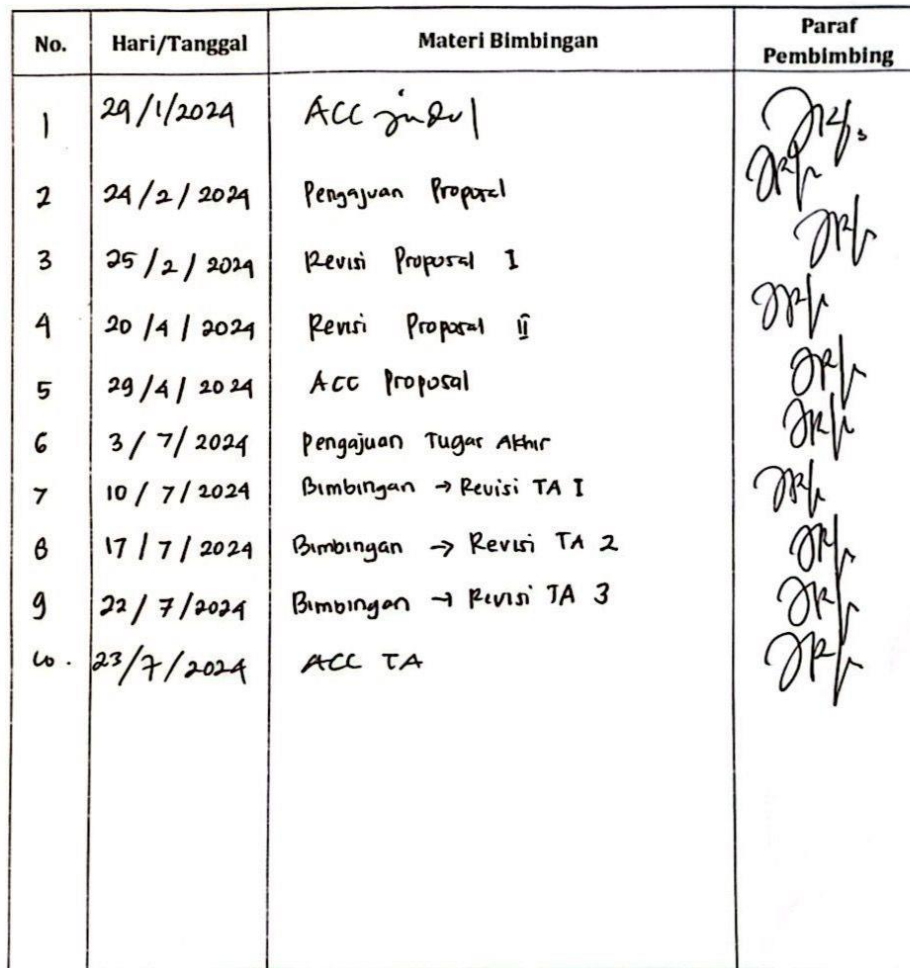 No. Hari/Tanggal Materi Bimbingan Paraf
Pembimbing
1 29/1/2024 ACC judul
2 24/2/2024 Pengajuan Proposal
3 25/2/2024 Revisi Proposal I
4 20/4/2024 Revisi Proposal II
5 29/4/2024 ACC Proposal
6 3/7/2024 Pengajuan Tugas Akhir
7 10/7/2024 Bimbingan → Revisi TA I
8 17/7/2024 Bimbingan → Revisi TA 2
9 22/7/2024 Bimbingan → Revisi TA 3
10. 23/7/2024 ACC TA